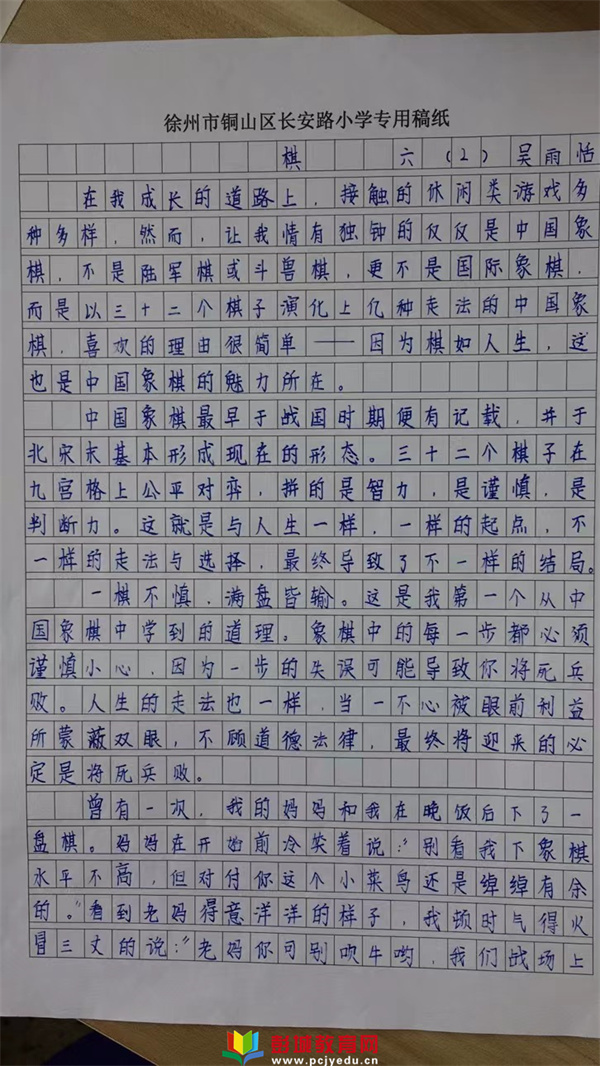 徐州市铜山区长安路小学专用稿纸
棋 六（2）吴雨恬
在我成长的道路上，接触的休闲类游戏多
种多样，然而，让我情有独钟的仅仅是中国象
棋，不是陆军棋或斗兽棋，更不是国际象棋，
而是以三十二个棋子演化上亿种走法的中国象
棋，喜欢的理由很简单——因为棋如人生，这
也是中国象棋的魅力所在。
中国象棋最早于战国时期便有记载，并于
北宋末基本形成现在的形态。三十二个棋子在
九宫格上公平对弈，拼的是智力，是谨慎，是
判断力。这就是与人生一样，一样的起点，不
一样的走法与选择，最终导致了不一样的结局。
一棋不慎，满盘皆输。这是我第一个从中
国象棋中学到的道理。象棋中的每一步都必须
谨慎小心，因为一步的失误可能导致你将死兵
败。人生的走法也一样，当一不心被眼前利益
所蒙蔽双眼，不顾道德法律，最终将迎来的必
定是将死兵败。
曾有一次，我的妈妈和我在晚饭后下了一
盘棋。妈妈在开始前冷笑着说：“别看我下象棋
水平不高，但对付你这个小菜鸟还是绰绰有余
的。”看到老妈得意洋洋的样子，我顿时气得火
冒三丈的说：“老妈你可别吹牛哟，我们战场上
彭城教育网
www.pcjyedu.cn